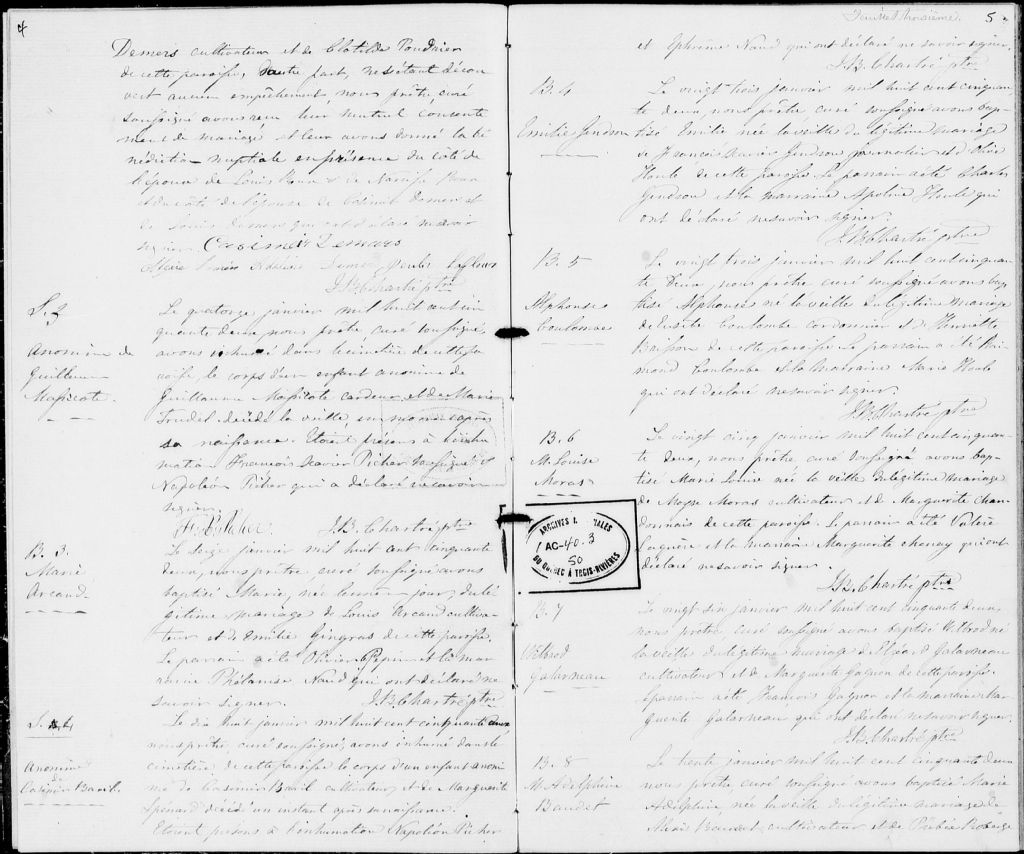 4
Demers cultivateur et de Clotilde Poudrier
de cette paroisse, d'autre part, ne s'étant décou
vert aucun empêchement, nous prêtre, curé
soussigné avons reçu leur mutuel consente
ment de mariage et leur avons donné la bé
nédiction nuptiale en présence du côté de
l'époux de Louis et de Narcisse
et du côté de l'épouse de Casimir Demers et
de Louis Demers qui ont déclaré ne savoir
signer. Casimir Demers
Demers
J.B. Chartré ptre
S. 3
Anonime de
Guillaume
Massicote
Le quatorze janvier mil huit cent cin
quante deux, nous prêtre curé soussigné,
avons inhumé dans le cimetière de cette pa
roisse, le corps d'un enfant anonime de
Guillaume Massicote cardeur et de Marie
Trudel décédé la veille, en après
sa naissance. Etoient présens à l'inhu
mation François Xavier Picher soussigné et
Napoléon Picher qui a déclaré ne savoir
signer.
J.B. Chartré ptre
B. 3.
Marie
Arcand
Le seize janvier mil huit cent cinquante
deux, nous prêtre curé soussigné avons
baptisé Marie, née le même jour, du lé
gitime mariage de Louis Arcand cultiva-
teur et de Emilie Gingras de cette paroisse.
Le parrain a été Olivier Pepin et la mar
raine Philanise Naud qui ont déclaré ne
savoir signer. J.B. Chartré ptre
S. 4
Anonime
de
Casimir Baril
Le dix huit janvier mil huit cent cinquante deux
nous prêtre, curé soussigné, avons inhumé dans le
cimetière de cette paroisse le corps d'un enfant anoni
me de Casimir Baril cultivateur et de Marguerite
décédé un instant après sa naissance.
Etoient présens à l'inhumation Napoléon Picher
Feuillet troisième. 5
et Ephrème Naud qui ont déclaré ne savoir signer.
J.B. Chartré ptre
B. 4
Emilie Gendron
Le vingt trois janvier mil huit cent cinquan
te deux, nous prêtre, curé soussigné avons bap
tisé Emilie née la veille du légitime mariage
de François Xavier Gendron journalier et d'Olive
Houle de cette paroisse. Le parrain a été Charles
Gendron et la marraine Apoline Houle qui
ont déclaré ne savoir signer.
J.B. Chartré ptre
B. 5
Alphonse
Coulombe
Le vingt trois janvier mil huit cent cinquan
te deux, nous prêtre curé soussigné avons bap
tisé Alphonse né la veille du légitime mariage
de Coulombe cordonnier et de Henriette
Buisson de cette paroisse. Le parrain a été
Coulombe et la marraine Marie Houle
qui ont déclaré ne savoir signer.
J.B. Chartré ptre
B. 6
M. Louise
Moras
Le vingt cinq janvier mil huit cent cinquan-
te deux, nous prêtre, curé soussigné avons bap-
tisé Marie Louise née la veille du légitime mariage
de Moyse Moras cultivateur et de Marguerite Chan
donnais de cette paroisse. Le parrain a été Valère
et la marraine Marguerite qui ont
déclaré ne savoir signer.
J.B. Chartré ptre
ARCHIVES NATIONALES
AC-40.3
50
DU QUÉBEC À TROIS-RIVIÈRES
B. 7
Wilbrod
Galarneau
Le vingt six janvier mil huit cent cinquante deux
nous prêtre, curé soussigné avons baptisé Wilbrod né
la veille du légitime mariage de Galarneau
cultivateur et de Marguerite Gagnon de cette paroisse.
Le parrain a été François Gagnon et la marraine Mar
guerite Galarneau qui ont déclaré ne savoir signer.
J.B. Chartré ptre
B. 8
M. Adelphine
Beaudet
Le trente janvier mil huit cent cinquante deux
nous prêtre, curé soussigné avons baptisé Marie
Adelphine née la veille du légitime mariage de
Beaudet cultivateur et de Roberge